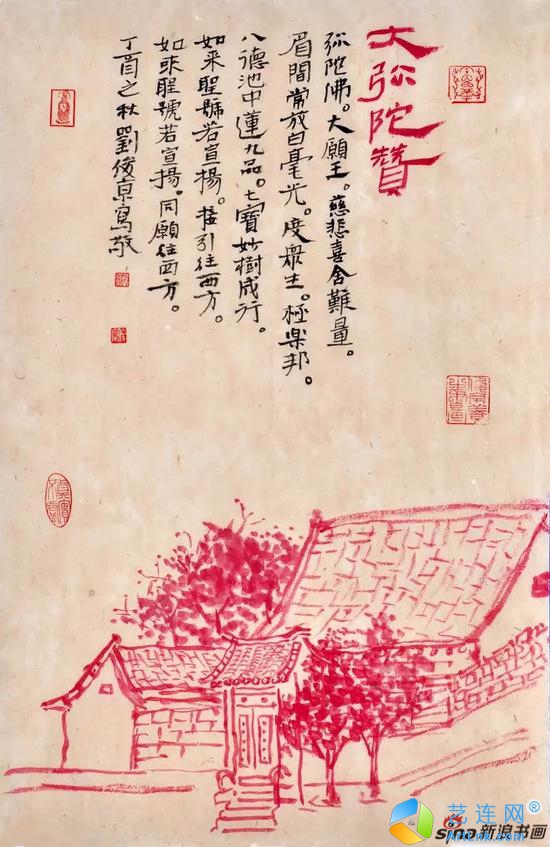 大弥陀贊
弥陀佛。大願王。慈悲喜舍難量。
眉間常放白毫光。度衆生。極楽邦。
八德池中蓮九品。七寶妙樹成行。
如来聖號若宣揚。接引往西方。
如来聖號若宣揚。同願往西方。
丁酉之秋 劉俊京寫敬
艺连网®
sina新浪书画